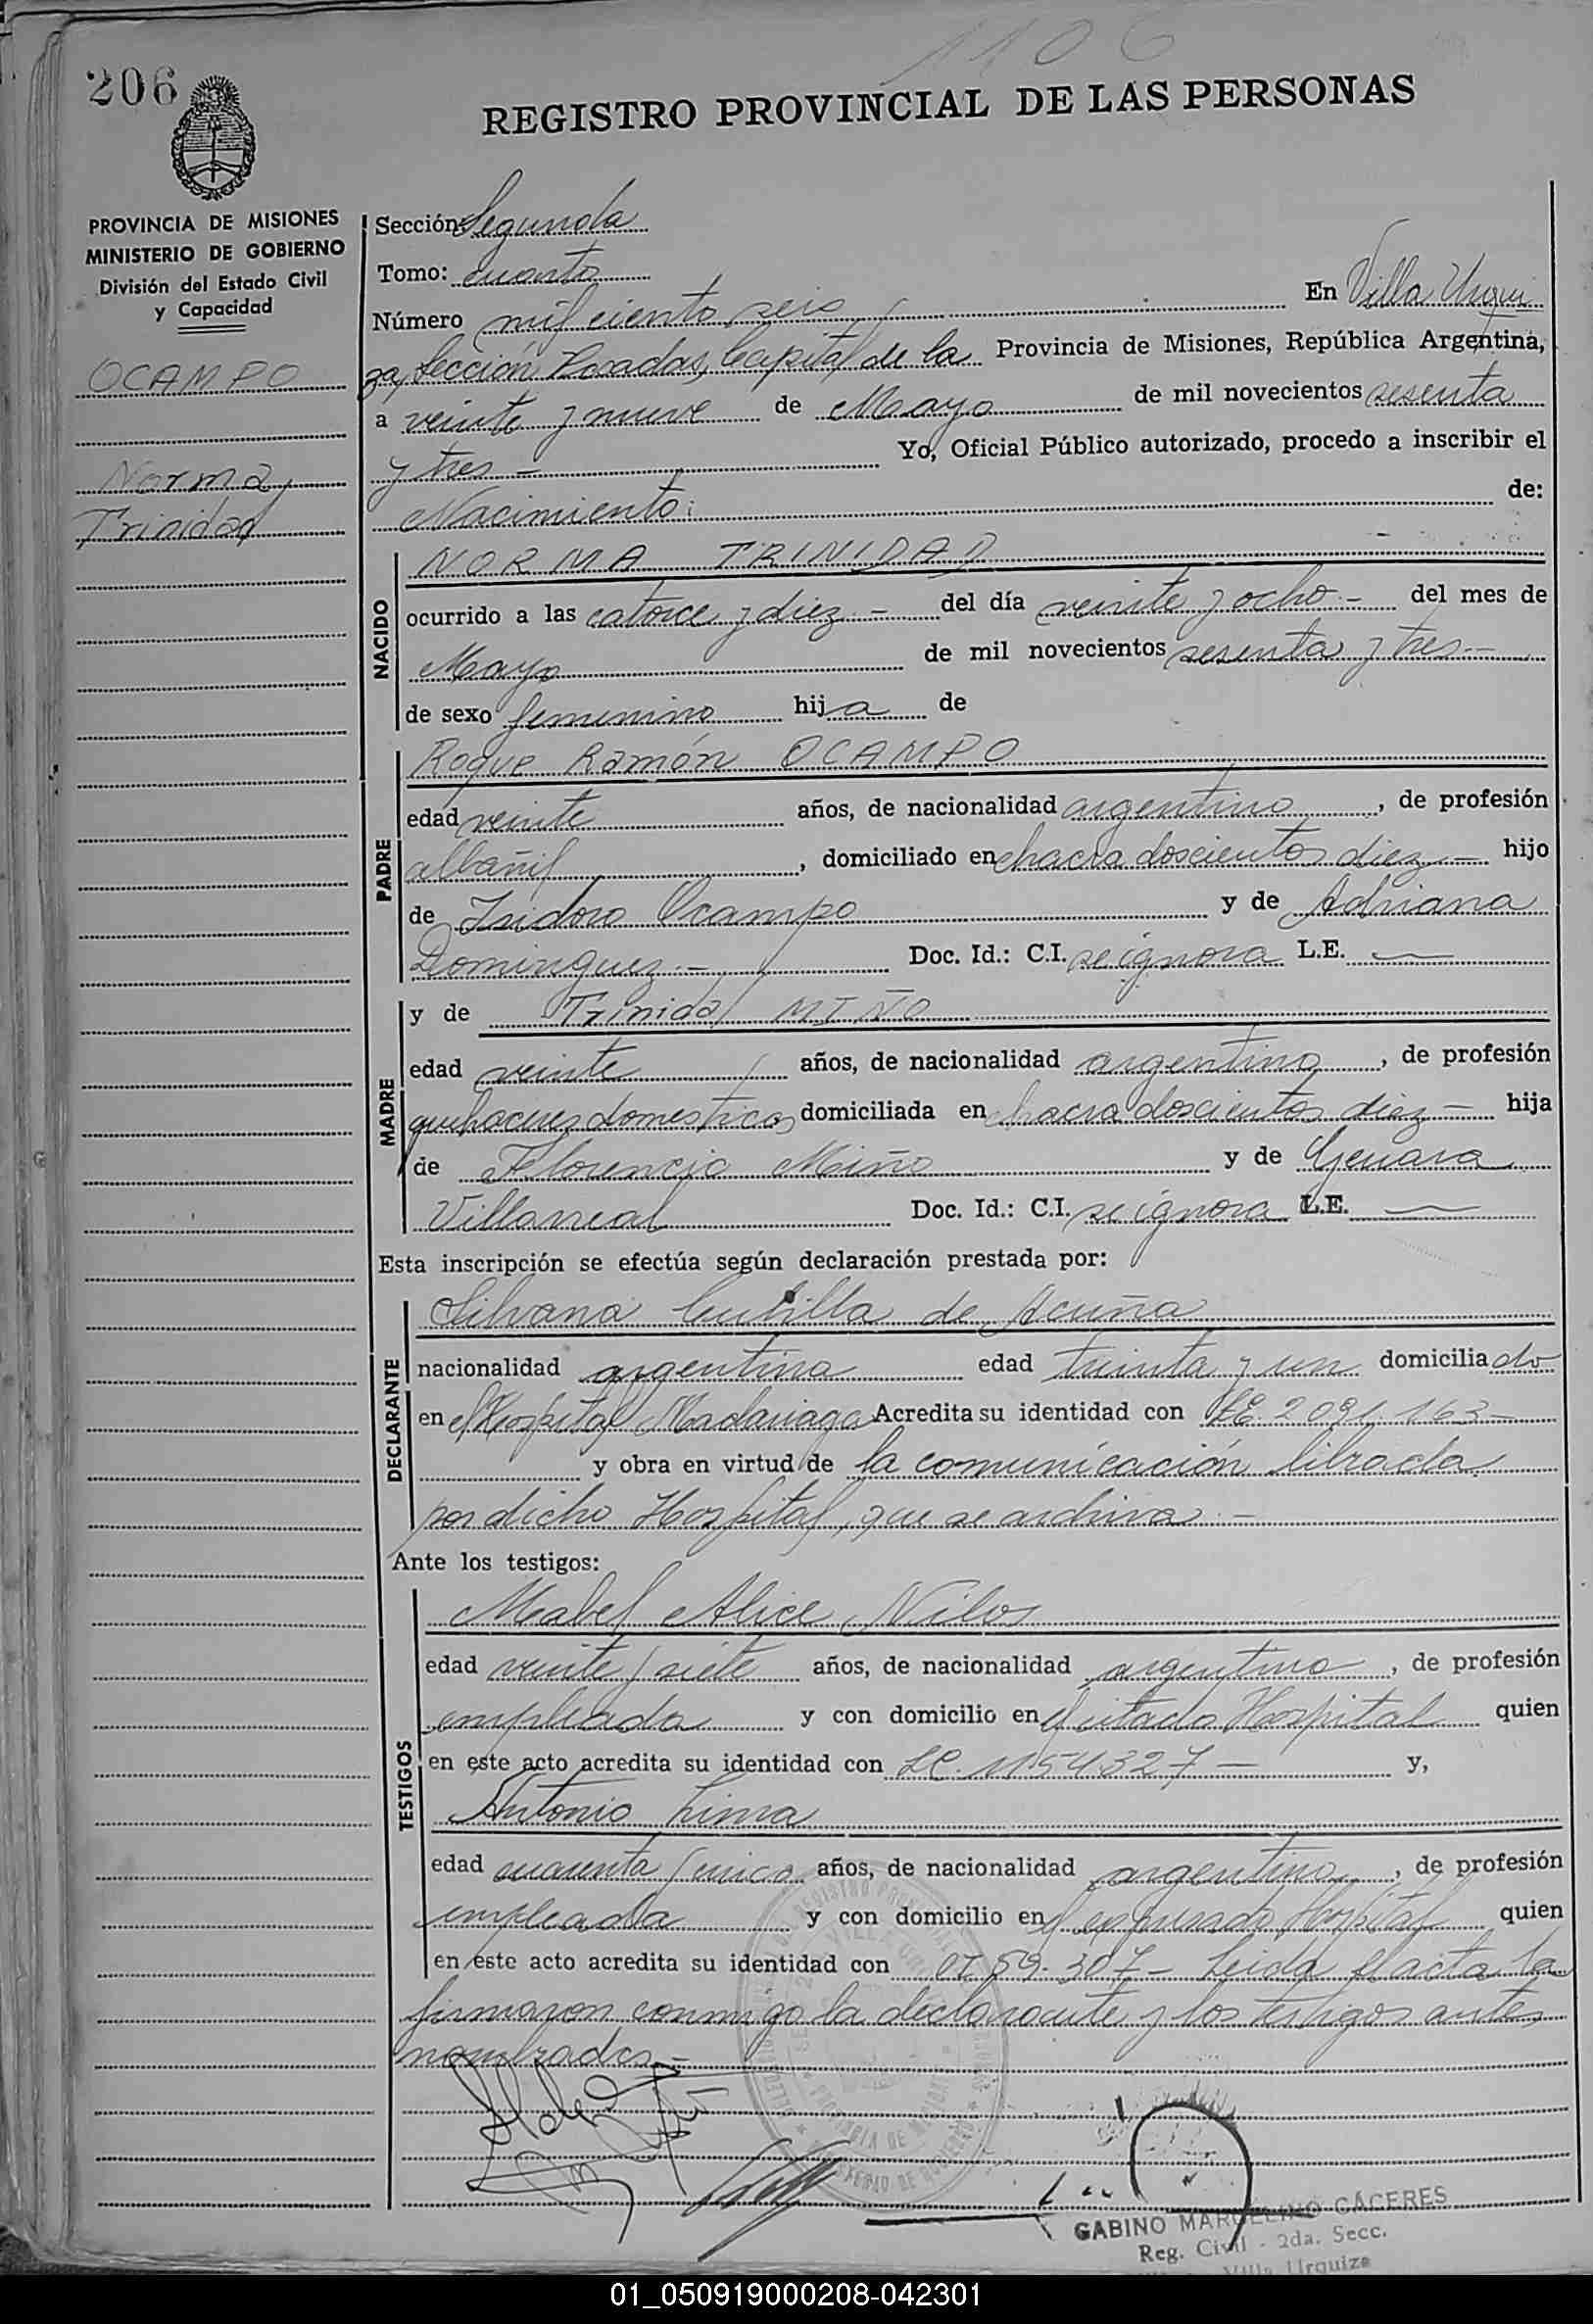 1106
206
REGISTRO PROVINCIAL DE LAS PERSONAS
PROVINCIA DE MISIONES
MINISTERIO DE GOBIERNO
División del Estado Civil
y Capacidad
OCAMPO
Norma
Trinidad
Sección Segunda
Tomo: cuarto
Número mil ciento seis En Villa Urqui
za, Sección Posadas, Capital de la Provincia de Misiones, República Argentina,
a veinte y nueve de Mayo de mil novecientos sesenta
y tres - Yo, Oficial Público autorizado, procedo a inscribir el
Nacimiento: de:
NACIDO
NORMA TRINIDAD
ocurrido a las catorce y diez - del día veinte y ocho - del mes de
Mayo de mil novecientos sesenta y tres -
de sexo femenino hija de
PADRE
Roque Ramón OCAMPO
edad veinte años, de nacionalidad argentino, de profesión
albañil, domiciliado en chacra doscientos diez - hijo
de Isidoro Ocampo y de Adriana
Dominguez.- Doc. Id.: C.I. se ignora L.E. —
MADRE
y de Trinidad MIÑO
edad veinte años, de nacionalidad argentina, de profesión
quehaceres domesticos domiciliada en chacra doscientos diez - hija
de Florencio Miño y de Genara
Villarreal Doc. Id.: C.I. se ignora L.E. —
Esta inscripción se efectúa según declaración prestada por:
DECLARANTE
Silvana de Acuña
nacionalidad argentina edad treinta y un domiciliado
en el Hospital Madariaga Acredita su identidad con 2.091.163 -
y obra en virtud de la comunicación librada
por dicho Hospital, que se archiva.-
Ante los testigos:
TESTIGOS
Mabel Alice
edad veinte y siete años, de nacionalidad argentina, de profesión
empleada y con domicilio en el citado Hospital quien
en este acto acredita su identidad con LC. 1154327 - y,
Antonio Lima
edad cuarenta y cinco años, de nacionalidad argentino, de profesión
empleada y con domicilio en el expresado Hospital quien
en este acto acredita su identidad con 59.307 - Leida el acta la
firmaron conmigo la declarante y los testigos antes
nombrados.-
GABINO MARCELINO CÁCERES
Reg. Civil - 2da. Secc.
Villa Urquiza
01_050919000208-042301